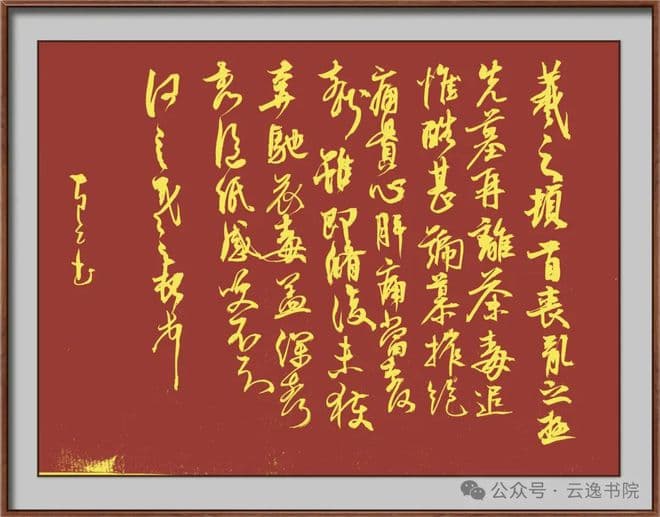 羲之頓首喪亂之極
先墓再離荼毒追
惟酷甚號慕摧絕
痛貫心肝痛當奈何
奈何雖即脩復未獲
奔馳哀毒益深奈何
奈何臨紙感哽不知
何言羲之頓首頓首
公众号 · 云逸书院